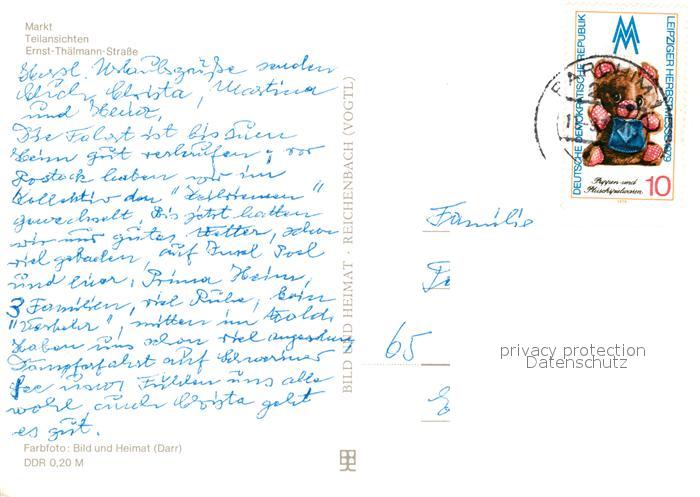 Markt
Teilansichten
Ernst-Thälmann-Straße
Herzl. Urlaubsgrüße senden
Euch Christa, Martina
und Heinz,
Die Fahrt ist bis zum
Heim gut verlaufen, vor
Rostock haben wir im
Kollektiv den
gewechselt, Bis jetzt hatten
wir nur gutes Wetter, schon
viel gebaden, auf Insel Poel
und hier, Prima Heim,
3 Familien, viel Ruhe, kein
"Verkehr", mitten im Wald.
Haben uns schon viel angesehen,
Dampferfahrt auf Schweriner
See usw. Fühlen uns alle
wohl, auch Christa geht
es gut.
Farbfoto: Bild und Heimat (Darr)
DDR 0,20 M
BILD UND HEIMAT · REICHENBACH (VOGTL)
DEUTSCHE DEMOKRATISCHE REPUBLIK
LEIPZIGER HERBSTMESSE 1979
Puppen und
Plüschspielwaren
10
Familie
65
privacy protection
Datenschutz